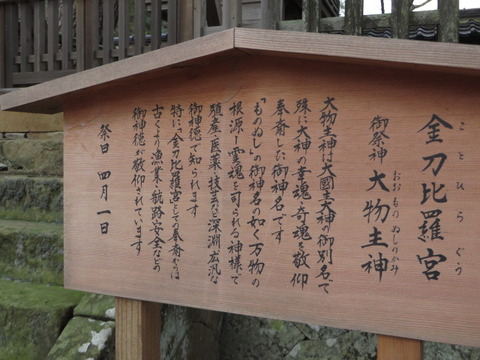 金刀比羅宮
ことひらぐう
御祭神 大物主神
おおものぬしのかみ
大物主神は大國主大神の御別名で
殊に大神の幸魂、奇魂を敬仰
奉斎した御神名です
「ものぬし」の御神名の如く万物の
根源、霊魂を司られる神様で
殖産・医薬・技芸など深淵広汎な
御神徳で知られます
特に「金刀比羅宮」としての奉斎からは
古くより漁業・航路安全などの
御神徳が敬仰されています
祭日 四月一日